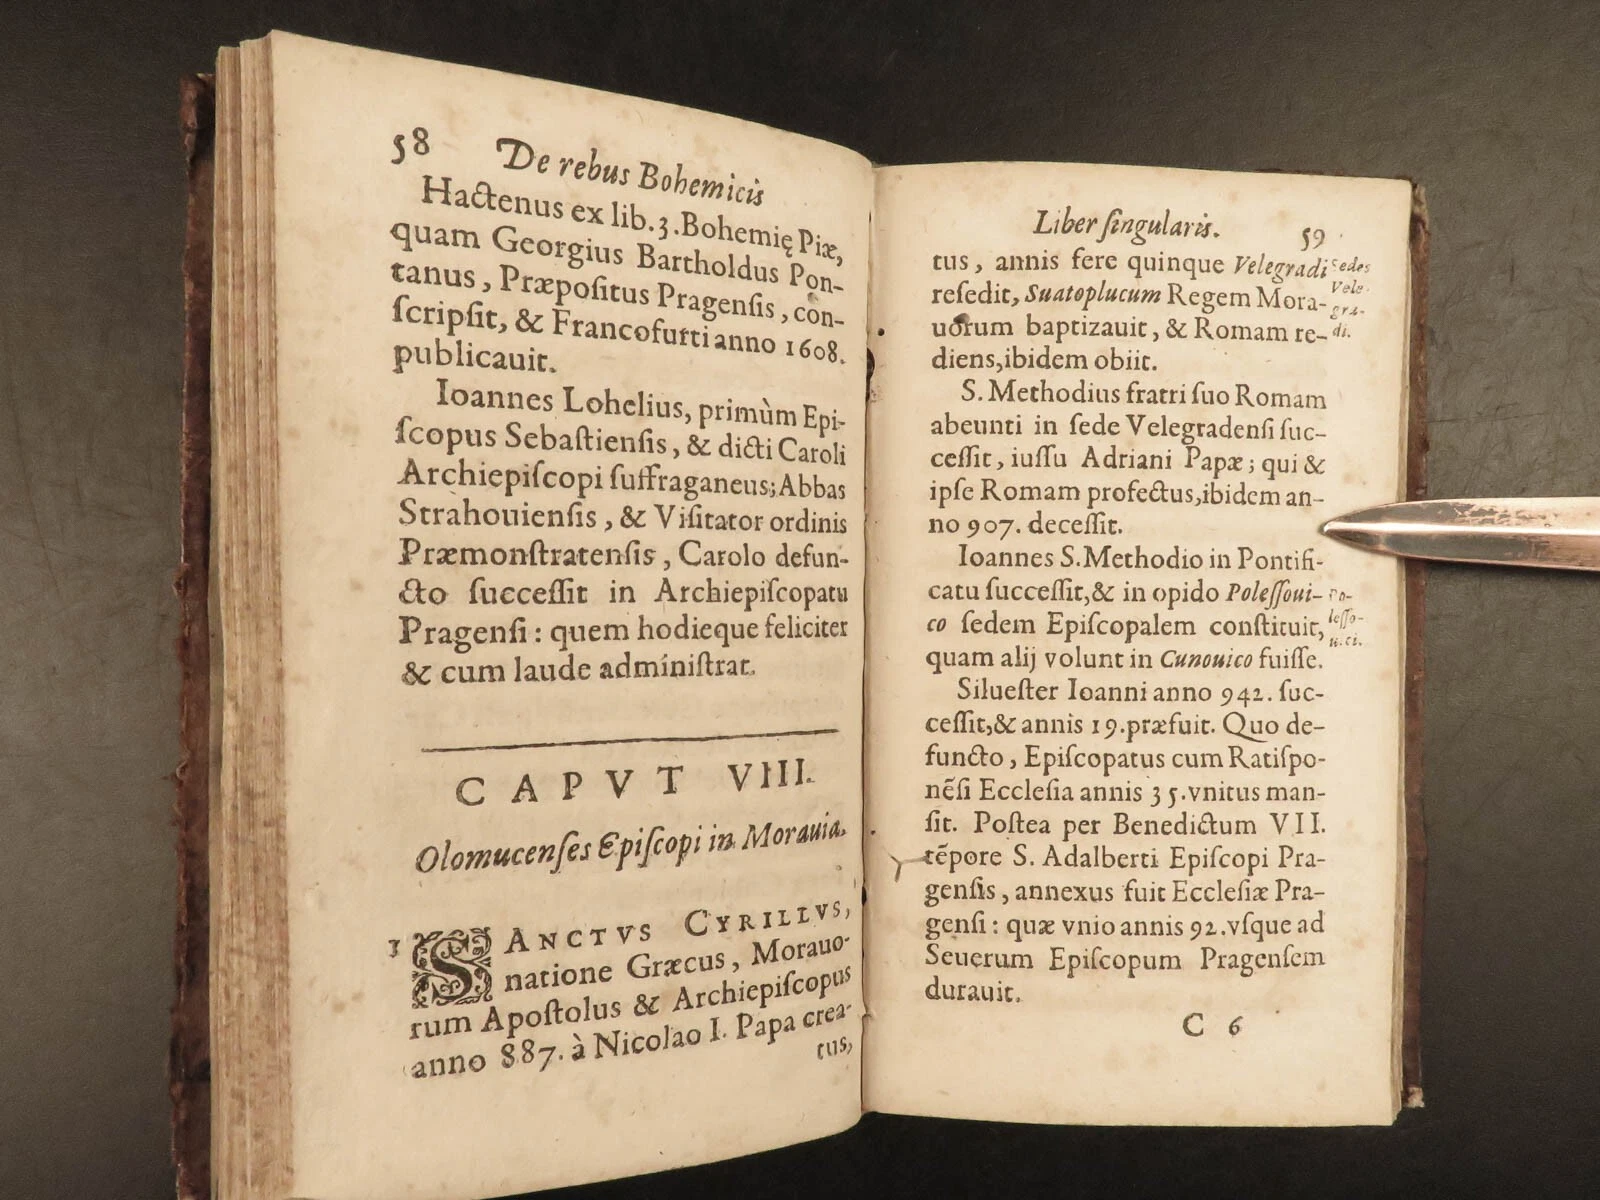 58 De rebus Bohemicis
Hactenus ex lib. 3. Bohemię Piæ,
quam Georgius Bartholdus Pon-
tanus, Præpoſitus Pragenſis, con-
ſcripſit, & Francofurti anno 1608.
publicauit.
Ioannes Lohelius, primùm Epi-
ſcopus Sebaſtienſis, & dicti Caroli
Archiepiſcopi ſuffraganeus; Abbas
Strahouienſis, & Viſitator ordinis
Præmonſtratenſis, Carolo defun-
cto ſucceſſit in Archiepiſcopatu
Pragenſi: quem hodieque feliciter
& cum laude adminiſtrat.
CAPVT VIII.
Olomucenſes Epiſcopi in Morauia.
1 SANCTVS CYRILLVS,
natione Græcus, Morauo-
rum Apoſtolus & Archiepiſcopus
anno 887. à Nicolao I. Papa crea-
tus,
Liber ſingularis. 59
tus, annis fere quinque Velegradi
reſedit, Suatoplucum Regem Mora-
uorum baptizauit, & Romam re-
diens, ibidem obiit.
Sedes
Vele-
gra-
di.
S. Methodius fratri ſuo Romam
abeunti in ſede Velegradenſi ſuc-
ceſſit, iuſſu Adriani Papæ; qui &
ipſe Romam profectus, ibidem an-
no 907. deceſſit.
Ioannes S. Methodio in Pontifi-
catu ſucceſſit, & in opido Poleſſoui-
co ſedem Epiſcopalem conſtituit,
quam alij volunt in Cunouico fuiſſe.
Po-
leſſo-
uici.
Silueſter Ioanni anno 942. ſuc-
ceſſit, & annis 19. præfuit. Quo de-
functo, Epiſcopatus cum Ratiſpo-
nẽſi Eccleſia annis 35. vnitus man-
ſit. Poſtea per Benedictum VII.
tẽpore S. Adalberti Epiſcopi Pra-
genſis, annexus fuit Eccleſiæ Pra-
genſi: quæ vnio annis 92. vſque ad
Seuerum Epiſcopum Pragenſem
durauit.
C 6